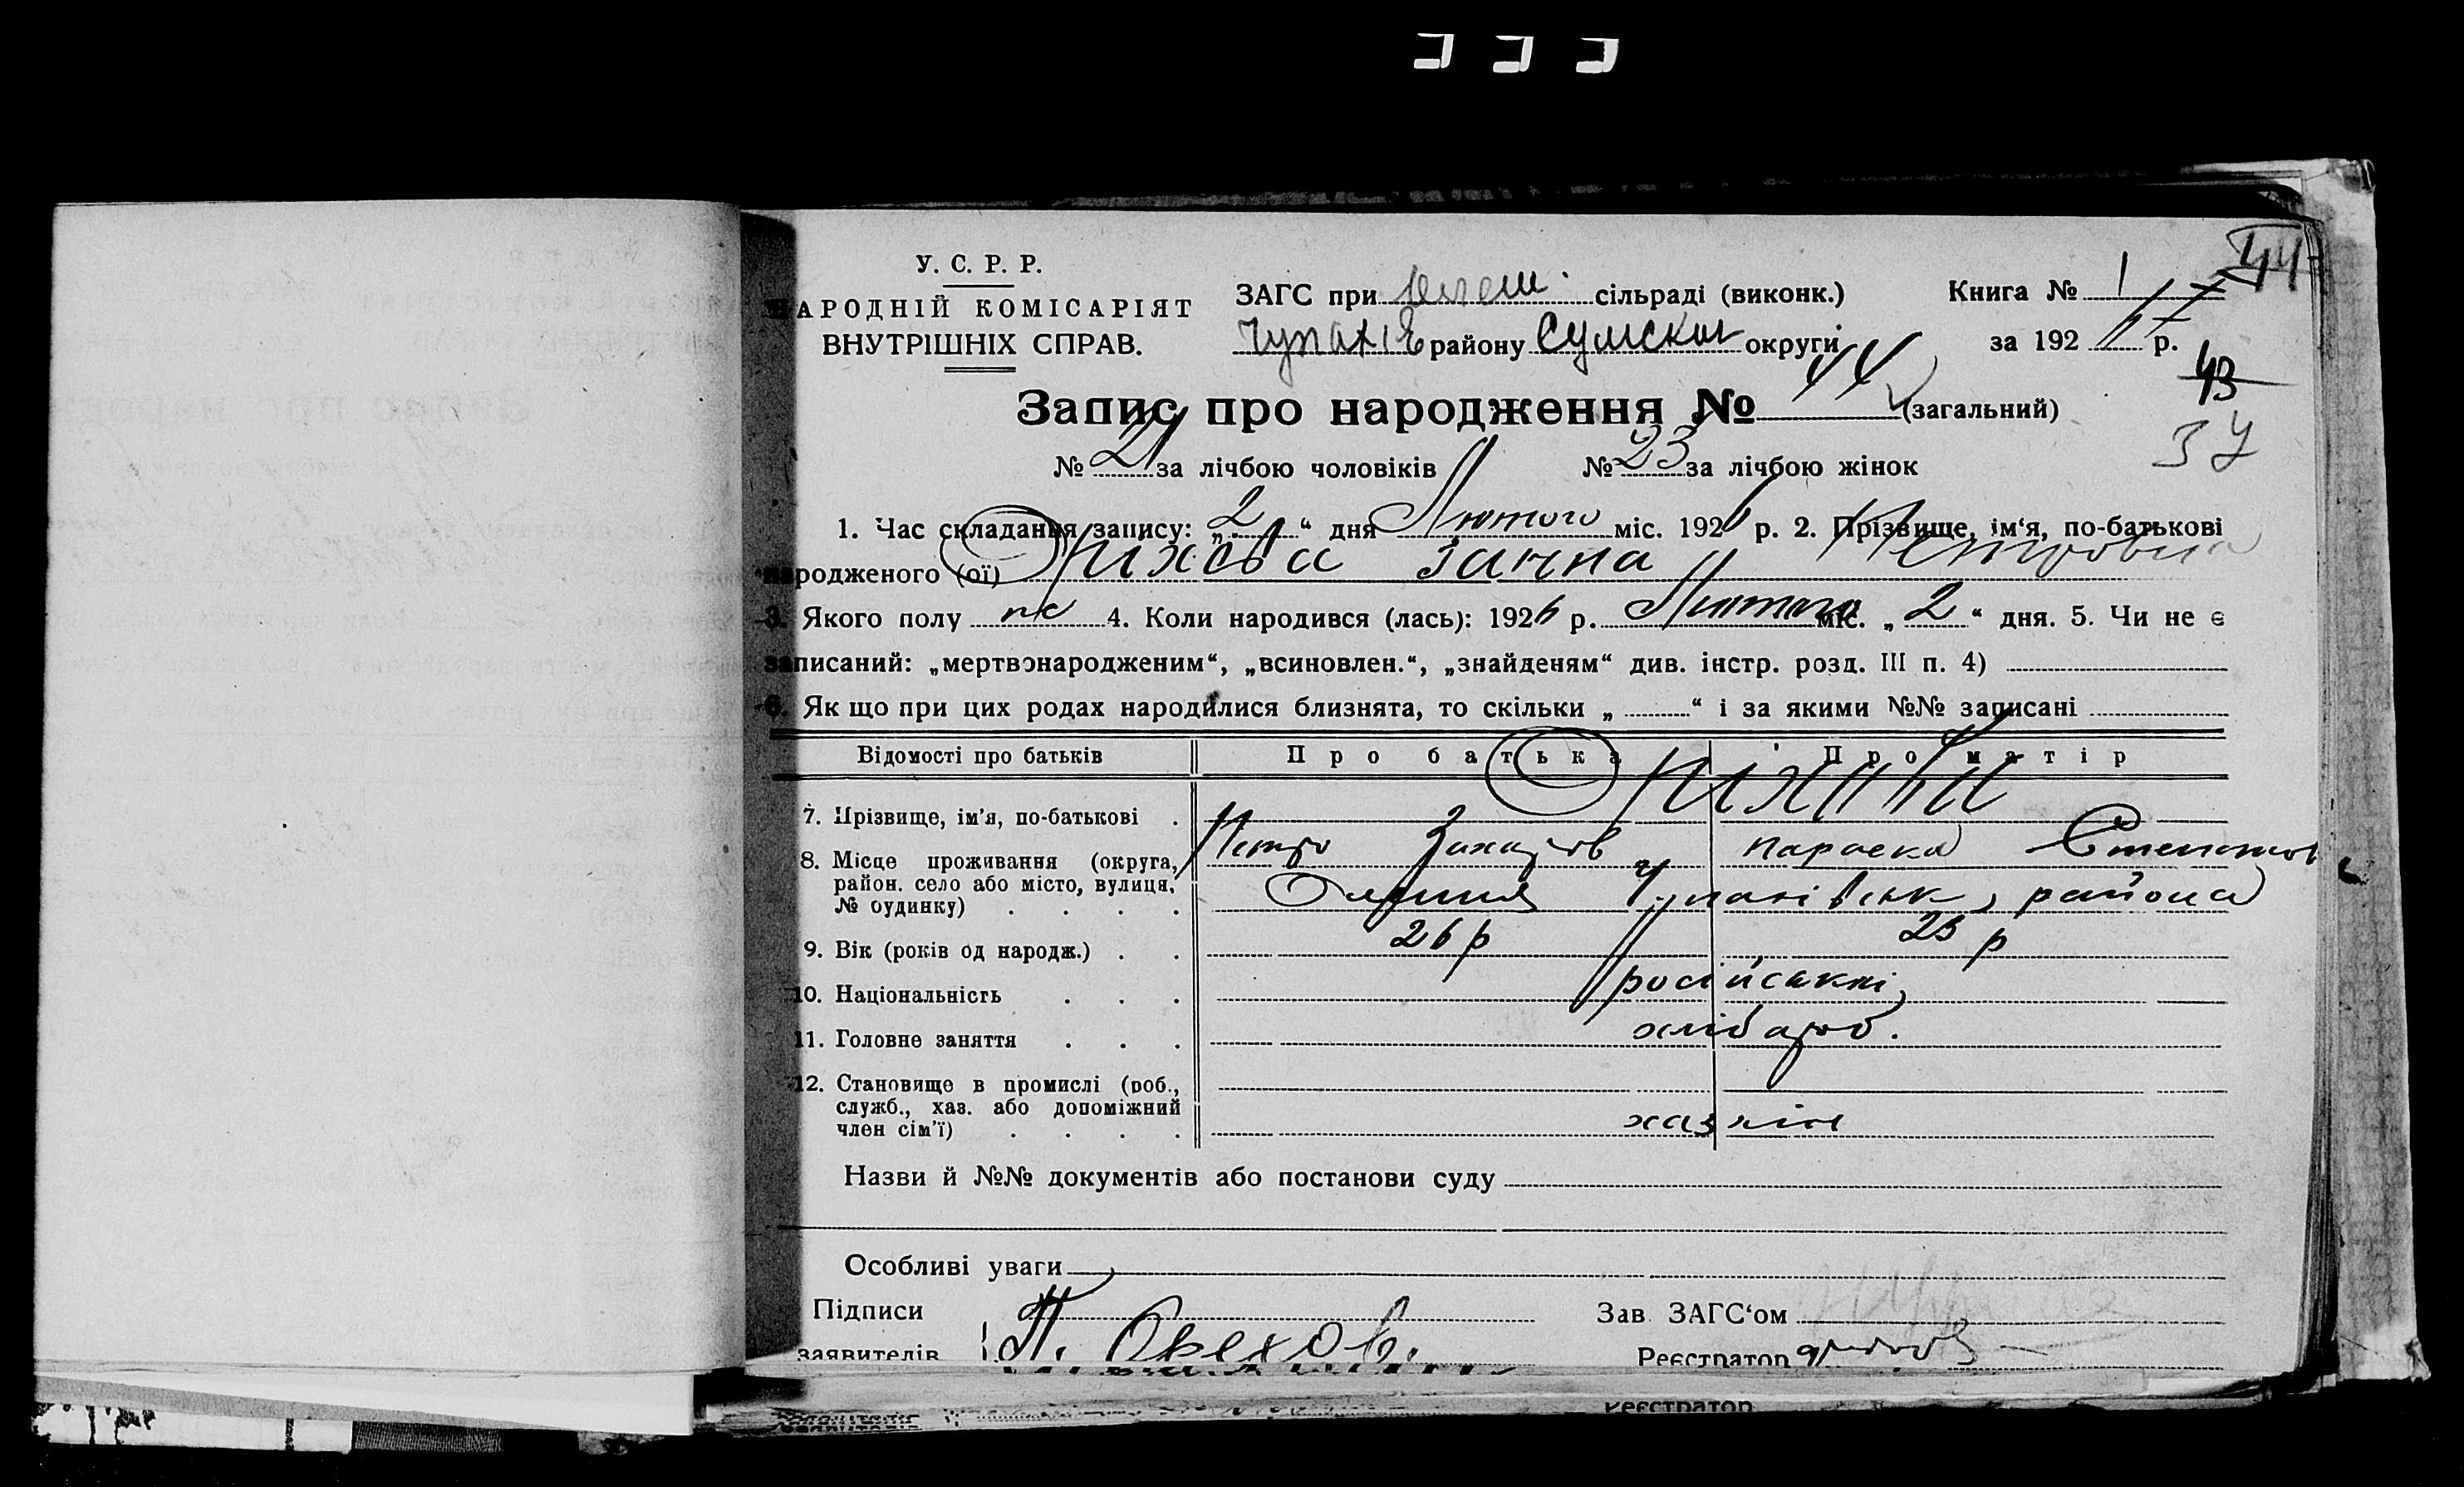 44
У. С. Р. Р.
НАРОДНІЙ КОМІСАРІЯТ
ВНУТРІШНІХ СПРАВ.
ЗАГС при сільраді (виконк.)
Чупахів району Сумской округи
Книга № 1
за 192 6 р.
43
37
Запис про народження № 44 (загальний)
№ 21 за лічбою чоловіків № 23 за лічбою жінок
1. Час складання запису: „2“ дня Лютого міс. 1926 р. 2. Прізвище, ім‘я, по-батькові
народженого (ої) Оріхова Ганна Петровна
3. Якого полу жс 4. Коли народився (лась): 1926 р. Лютого міс. „2“ дня. 5. Чи не є
записаний: „мертвонародженим“, „всиновлен.“, „знайденям“ див. інстр. розд. III п. 4)
6. Як що при цих родах народилися близнята, то скільки „ “ і за якими №№ записані
Відомості про батьків Про батька Про матір
7. Прізвище, ім’я, по-батькові . Оріхови
Петро Захаров Параска Степанов
8. Місце проживання (округа, район. село або місто, вулиця, № будинку) . . . . Чупахівськ, района
9. Вік (років од народж.) . . 26 р 23 р
10. Національність . . . російські
11. Головне заняття . . . хлібороб.
12. Становище в промислі (роб., служб., хаз. або допоміжний член сім’ї) . . . . хазяін
Назви й №№ документів або постанови суду
Особливі уваги
Підписи
заявителів П. Орехов.
Зав. ЗАГС‘ом
Реєстратор
Реєстратор